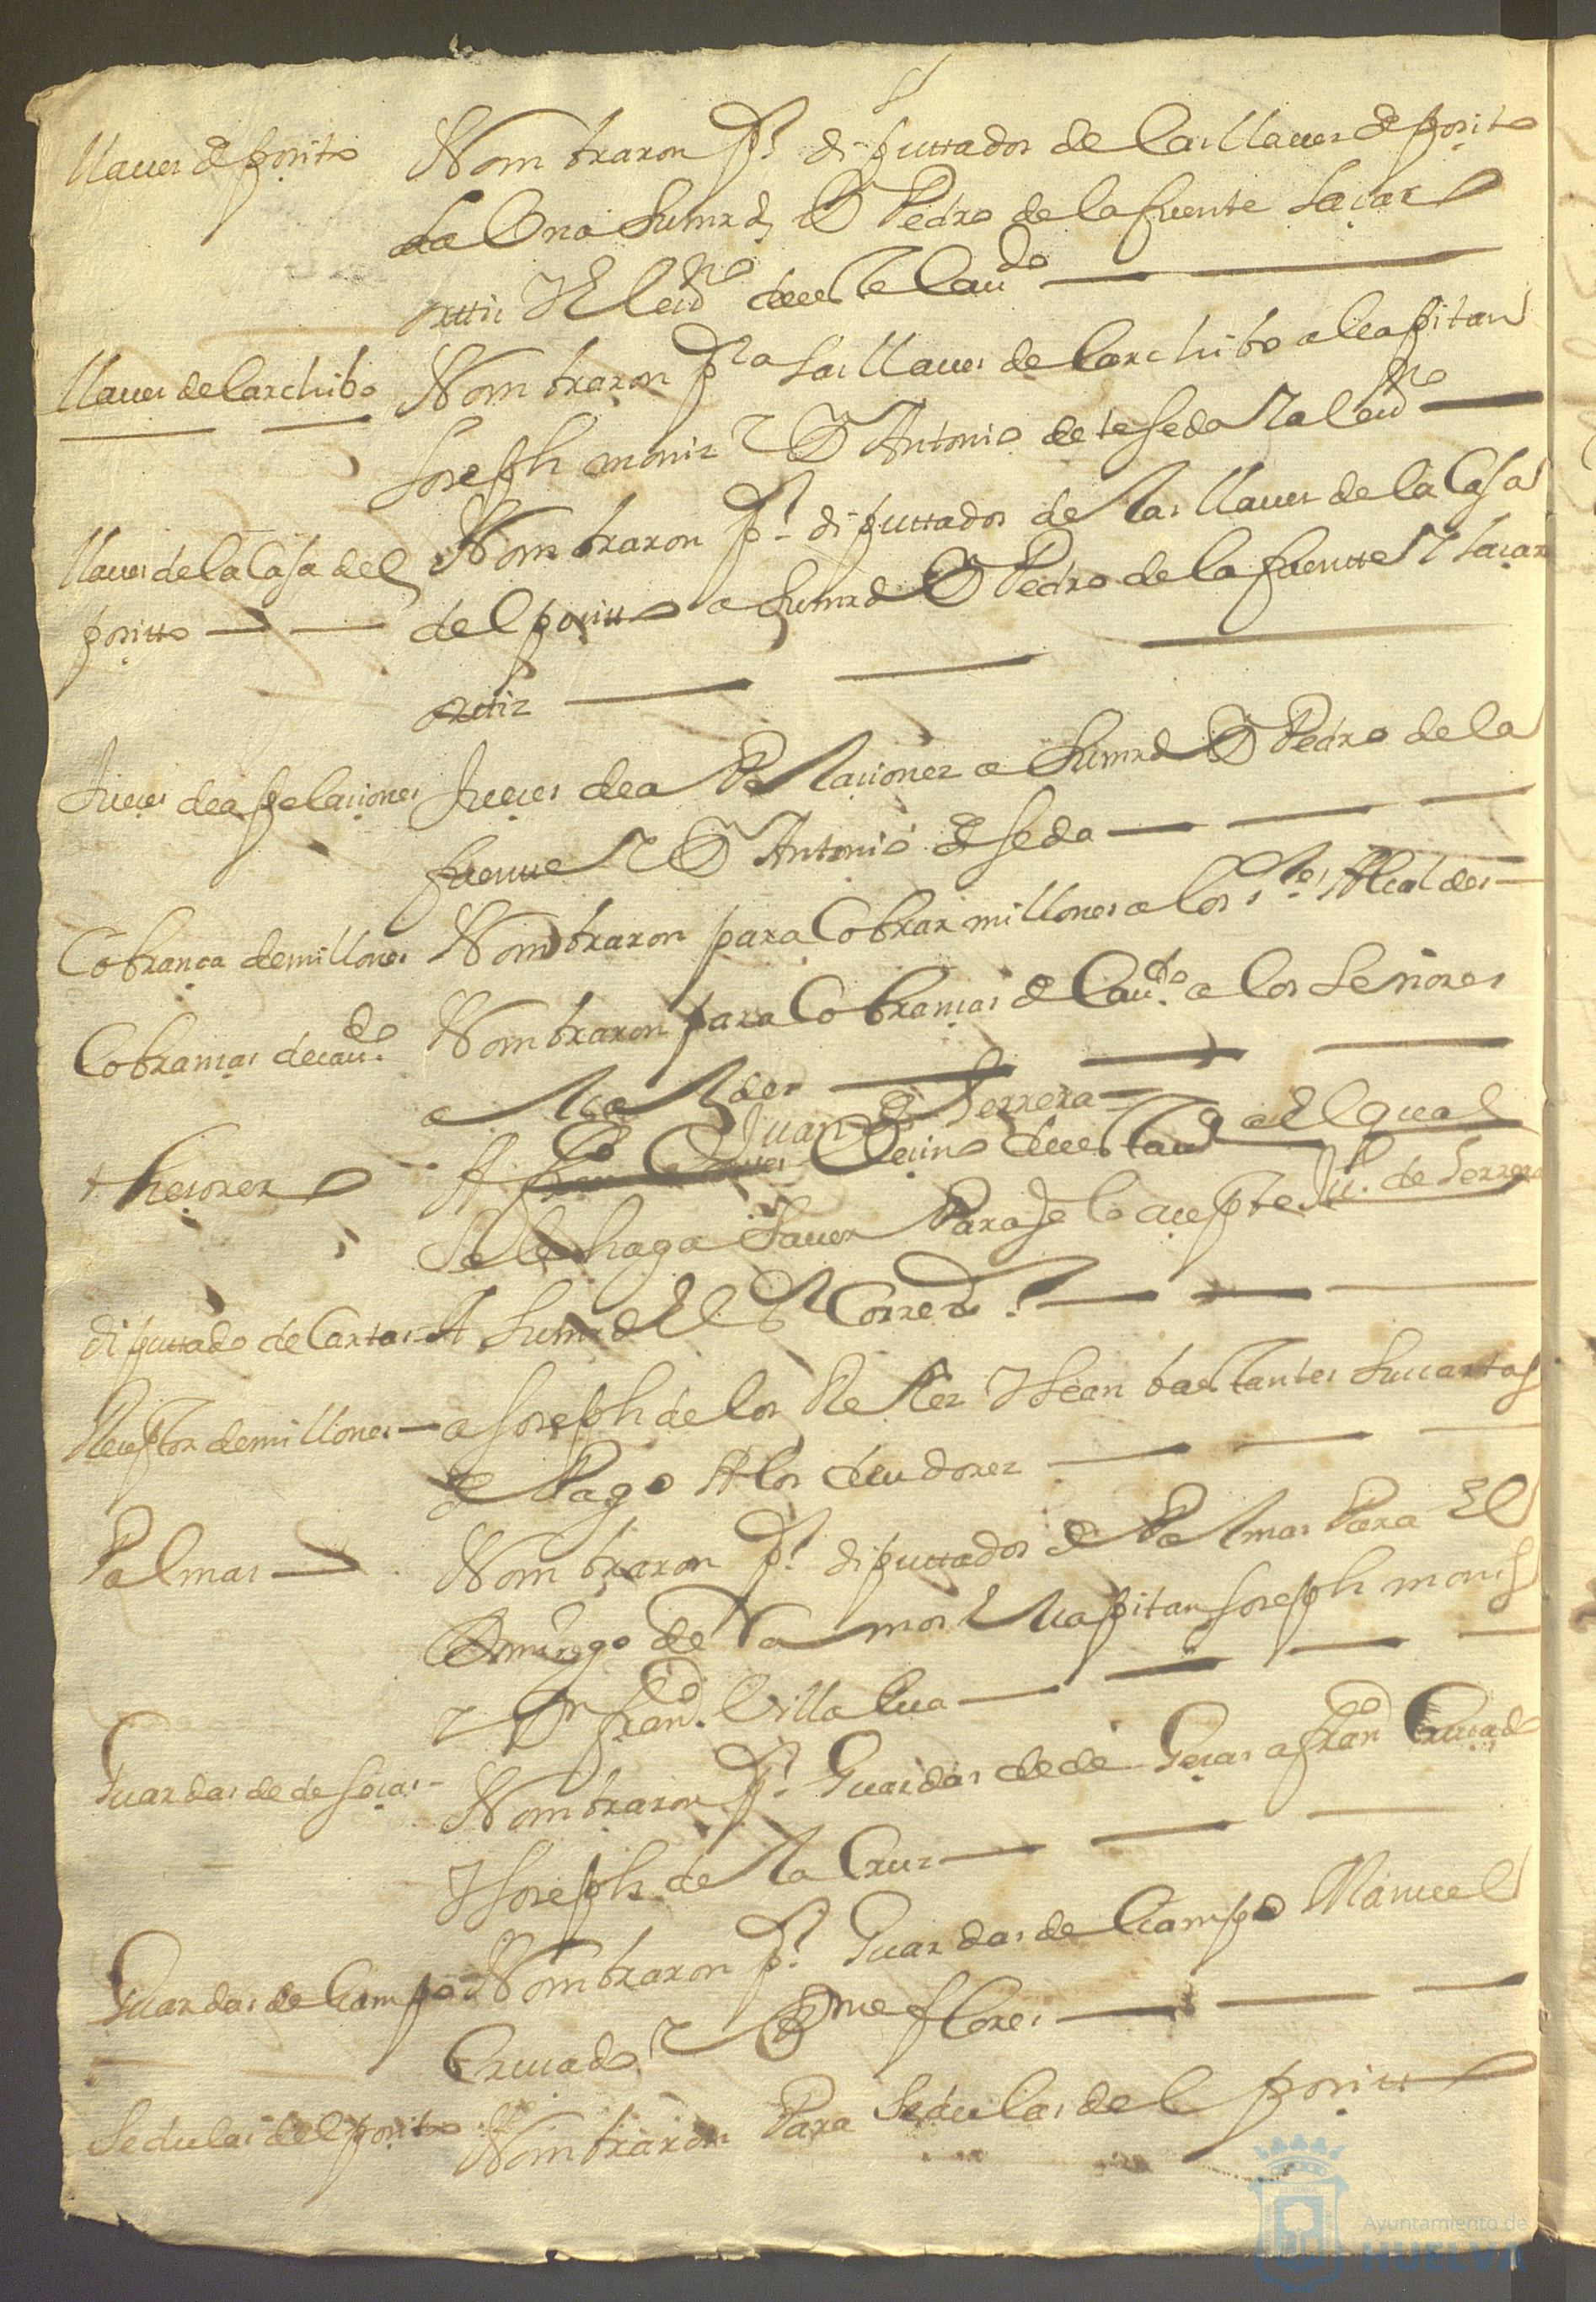 llaues de posito
Nombraron p.r diputtados de las llaues de posito
a la Una Su mrd D Pedro de la fuente sacar
orttiz Y El escriu.no deeste Cau.do
llaues del archibo
Nombraron p.ra las llaues del archibo al capitan
Joseph moniz y D Antonio de teseda Y al escriu.no
llaues de la Casa del
positto
Nombraron p.r diputtados de las llaues de la Casa
del positto a Su mrd D Pedro de la fuentte Y sacar
orttiz
Jueçes de apelaçiones
Jueçes de apelaçionez a Su mrd D Pedro de la
fuentte Y D Antonio de seda
Cobrança de millones
Nombraron para Cobrar millones a los s.res Alcaldes
Cobranças de cau.do
Nombraron para Cobranças de Cau.do a los Señores
alcaldes
thesorer
Juan de Serrera
A Veçino deesta ad El qual
Se le haga Sauer Para q lo açepte Ju.o de Serrera
diputtado de Cartas
A Su mrd El S.r Correx.r
Reçeptor de millones
a Joseph de los Rellez Y Sean bastantes Sus cartas
de Pago A los deudorez
Palmas
Nombraron p.r diputtados de Palmas Para El
Domingo de Ramos El capitan Joseph monis
y D.n fran.co Villalua
Guardas de desesas
Nombraron p.r Guardas de deesas a fran.co Cruçado
Y Joseph de la Cruz
Guardas de Campo
Nombraron p.r Guardas de Campo Manuel
Cruçado y B.me flores
Sedulas del posito
Nombraron Para Sedulas del positt
Ayuntamiento de
HUELVA